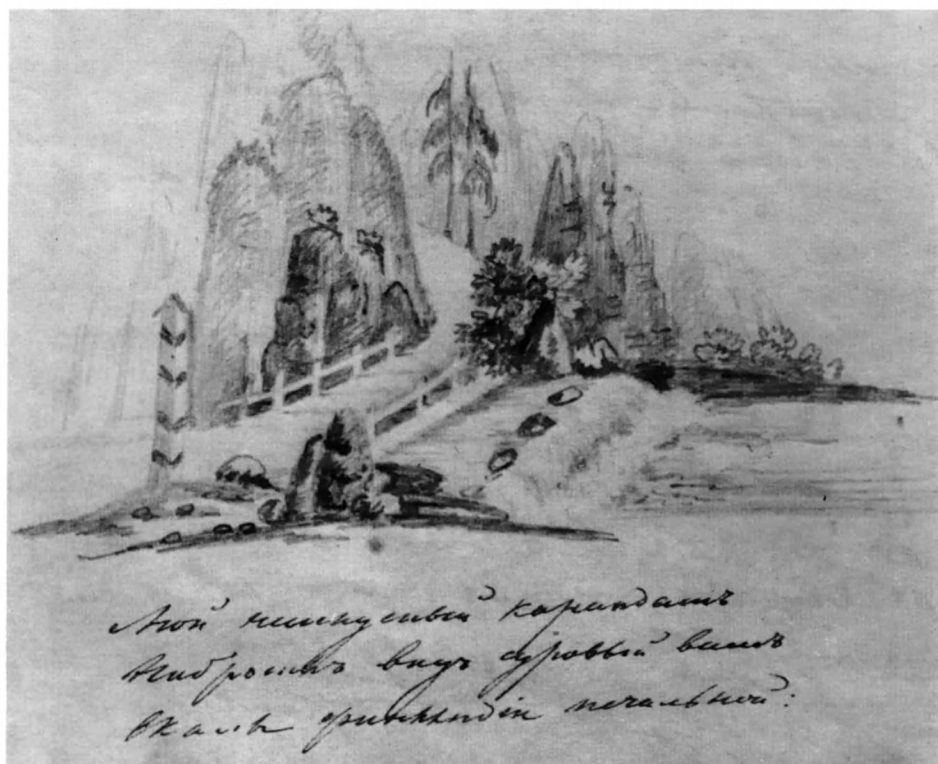 Мой неискусный карандашъ
Набросилъ видъ суровый вашъ
Скалы финляндіи печальной: